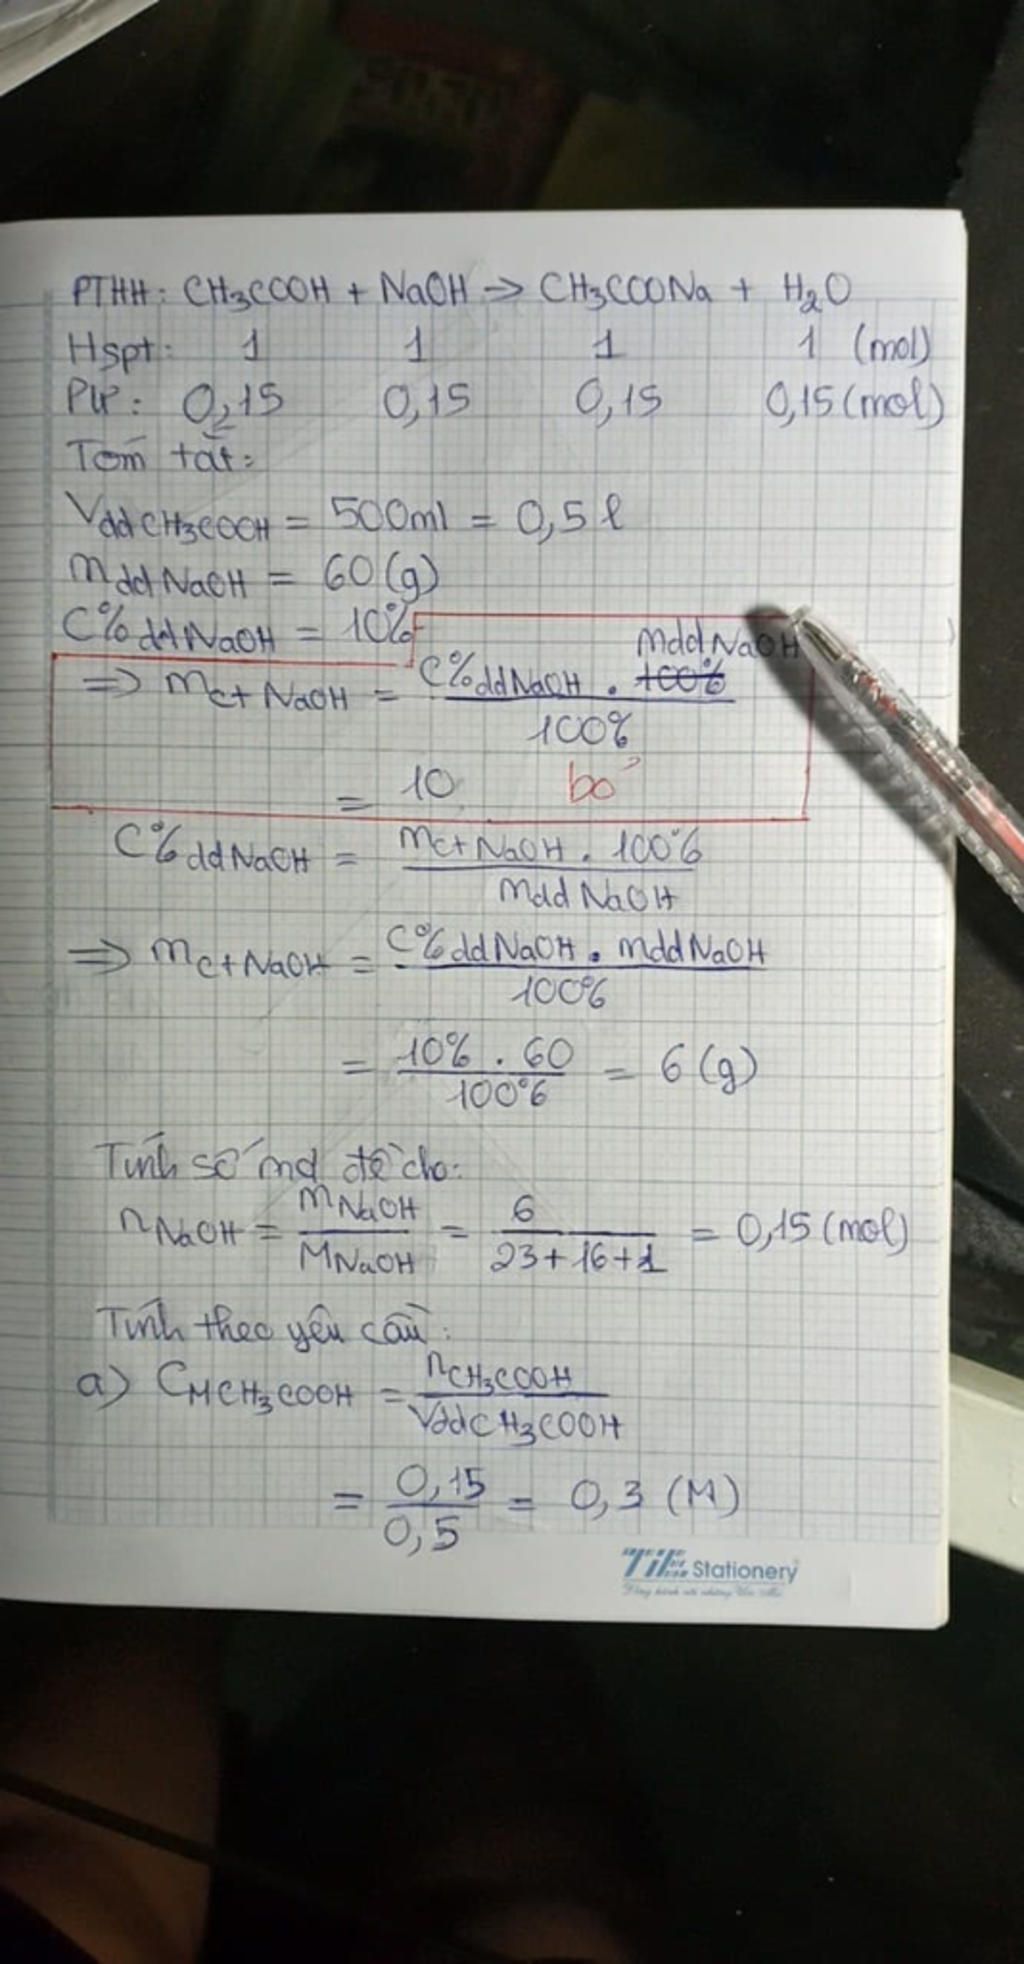 PTHH: CH3COOH + NaOH → CH3COONa + H2O
Hspt: 1 1 1 1 (mol)
Pứ: 0,15 0,15 0,15 0,15 (mol)
Tóm tắt:
VddCH3COOH = 500ml = 0,5 l
mddNaOH = 60 (g)
C%ddNaOH = 10%
mddNaOH
=> mct NaOH = C%ddNaOH . 100%
100%
= 10 bỏ
C%ddNaOH = mct NaOH . 100%
mdd NaOH
=> mct NaOH = C%ddNaOH . mddNaOH
100%
= 10% . 60 = 6 (g)
100%
Tính số mol đề cho:
nNaOH = mNaOH = 6 = 0,15 (mol)
MNaOH 23+16+1
Tính theo yêu cầu:
a) CMCH3COOH = nCH3COOH
VddCH3COOH
= 0,15 = 0,3 (M)
0,5
TiE Stationery